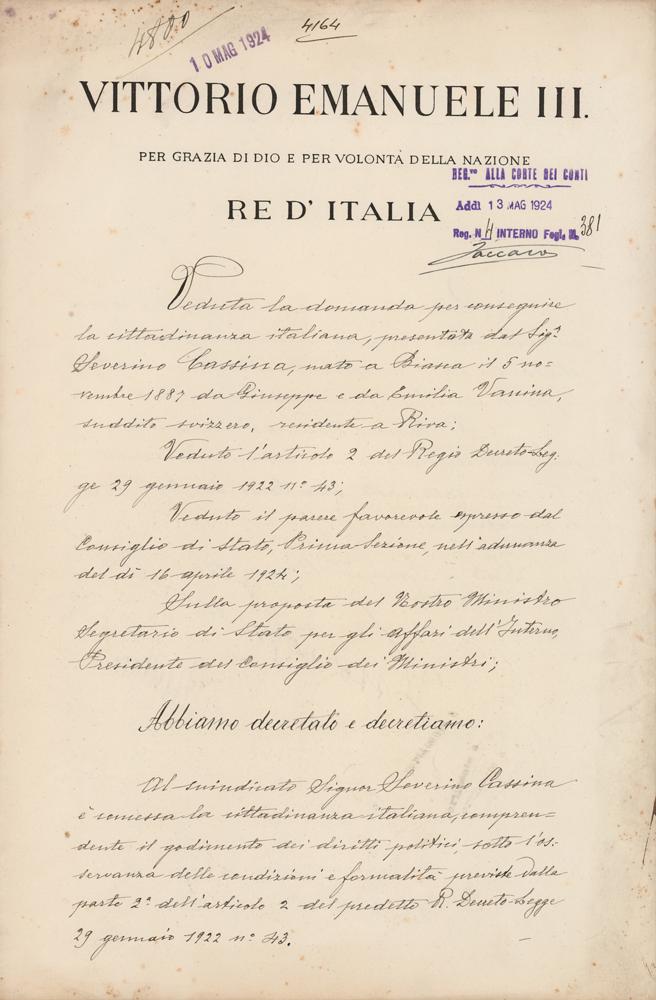 4800
10 MAG 1924
4164
VITTORIO EMANUELE III.
PER GRAZIA DI DIO E PER VOLONTÀ DELLA NAZIONE
RE D' ITALIA
REG.to ALLA CORTE DEI CONTI
Addì 13 MAG 1924
Reg. N. 4 INTERNO Fogl. N. 381
Veduta la domanda per conseguire
la cittadinanza italiana, presentata dal Sigr
Severino Cassina, nato a Biasca il 5 no=
vembre 1887 da Giuseppe e da Emilia Vanina,
suddito svizzero, residente a Riva;
Veduto l'articolo 2 del Regio Decreto-Leg:
ge 29 gennaio 1922 n° 43;
Veduto il parere favorevole espresso dal
Consiglio di Stato, Prima Sezione, nell'adunanza
del dì 16 aprile 1924;
Sulla proposta del Nostro Ministro
Segretario di Stato per gli affari dell'Interno,
Presidente del Consiglio dei Ministri;
Abbiamo decretato e decretiamo:
Al suindicato Signor Severino Cassina
è concessa la cittadinanza italiana, compren=
dente il godimento dei diritti politici, sotto l'os:
servanza delle condizioni e formalità previste dalla
parte 2a dell'articolo 2 del predetto R. Decreto-Legge
29 gennaio 1922 n° 43.